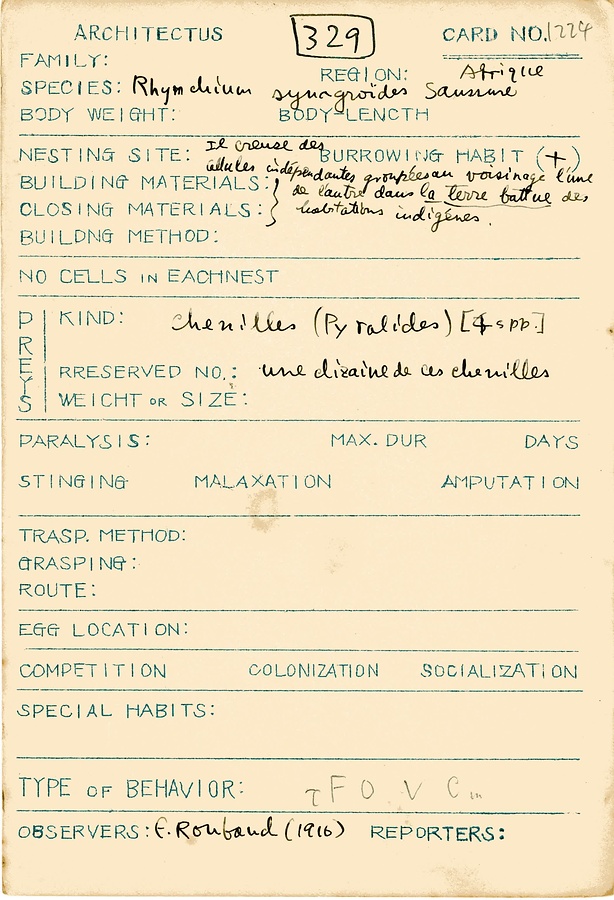 ARCHITECTUS 329 CARD NO. 1224
FAMILY:
REGION: Afrique
SPECIES: Rhynchium synagroïdes Saussure
BODY WEIGHT: BODY-LENGTH
NESTING SITE: Il creuse des BURROWING HABIT (+)
cellules indépendantes groupées au voisinage l'une
BUILDING MATERIALS: de l'autre dans la terre battue des
CLOSING MATERIALS: habitations indigènes.
BUILDNG METHOD:
NO CELLS IN EACHNEST
PREYS
KIND: chenilles (Pyralides) [4 spp.]
RRESERVED NO.: une dizaine de ces chenilles
WEICHT OR SIZE:
PARALYSIS: MAX. DUR DAYS
STINGING MALAXATION AMPUTATION
TRASP. METHOD:
GRASPING:
ROUTE:
EGG LOCATION:
COMPETITION COLONIZATION SOCIALIZATION
SPECIAL HABITS:
TYPE OF BEHAVIOR: T F O V C m
OBSERVERS: E. Roubaud (1916) REPORTERS: